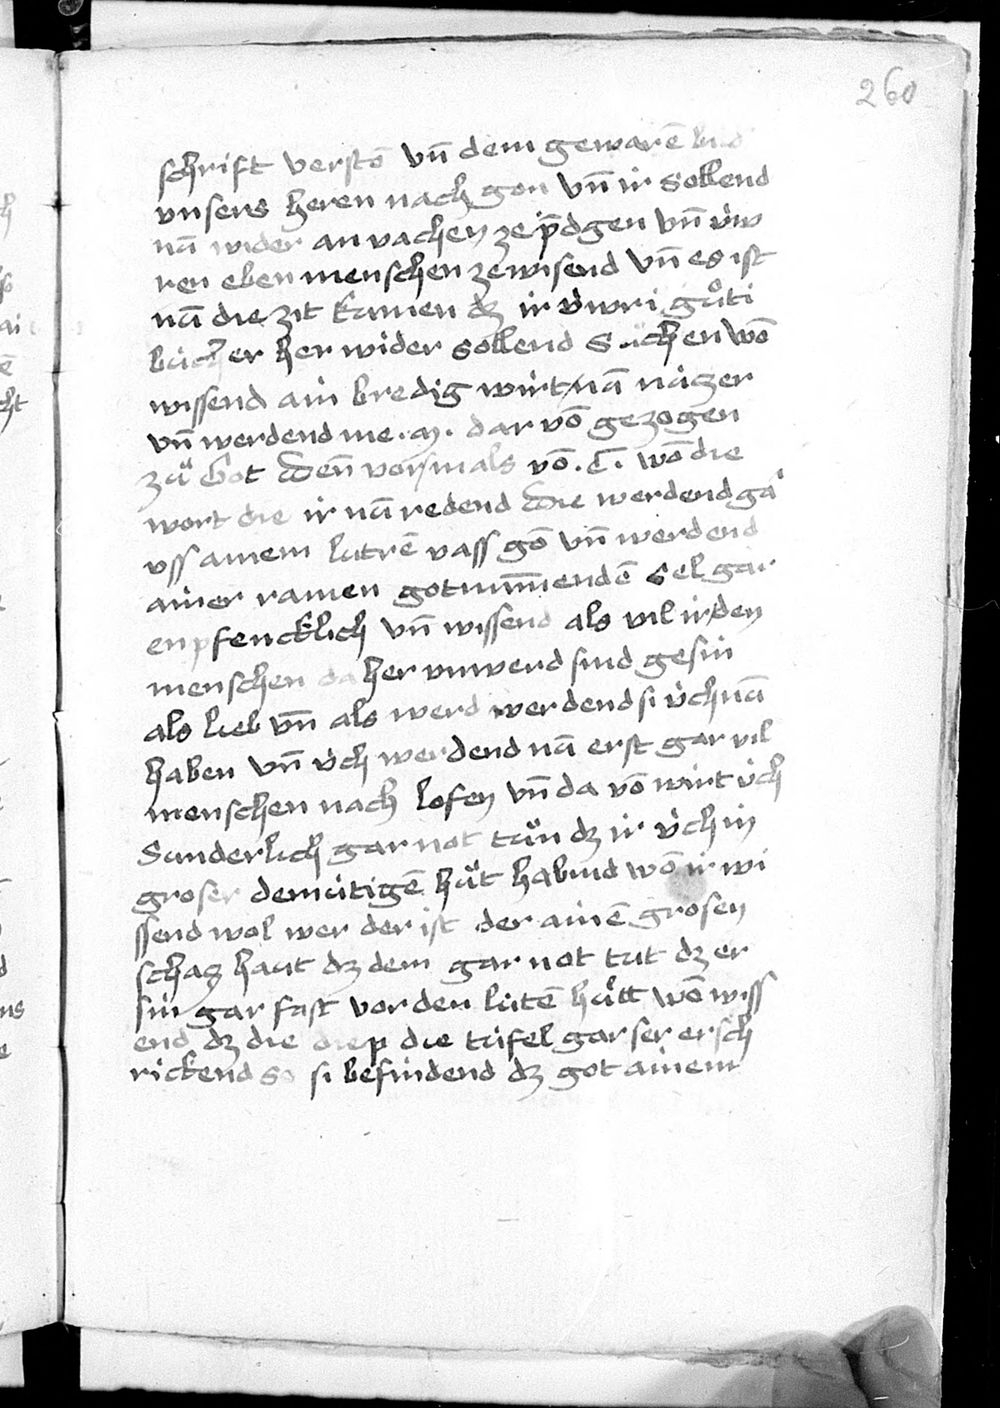 260
schrift verstō vn̄ dem gewarē bild
vnsers heren nach gon vn̄ ir sollend
nū wider an vachen ze p̄dgen vn̄ v́w
ren eben menschen ze wisend vn̄ es ist
nū die zit kumen dz ir v́wri gůti
bůcher her wider sollend sůchen wō
wissend ain bredig wirt nū núczer
vn̄ werdend me .m. dar vō gezogen
zů Got den vormals vō .c. wō die
wort die ir nū redend die werdend ga
vss ainem lutrē vass gō vn̄ werdend
ainer rainen gotminnendē sel gar
enpfencklich vn̄ wissend als vil ir den
menschen da her vnwerd sind gesin
als lieb vn̄ als werd werdend si v́ch nū
haben vn̄ v́ch werdend nū erst gar vil
menschen nach lofen vn̄ da vō wirt v́ch
sunderlich gar not tůn dz ir v́ch in
groser demútigē hůt habind wō ir wi
ssend wol wer der ist der ainē grosen
schacz haut dz dem gar not tut dz er
sin gar fast vor den lútē hůtt wō wiss
end dz die diep die túfel gar ser ersch
rickend so si befindend dz got ainem